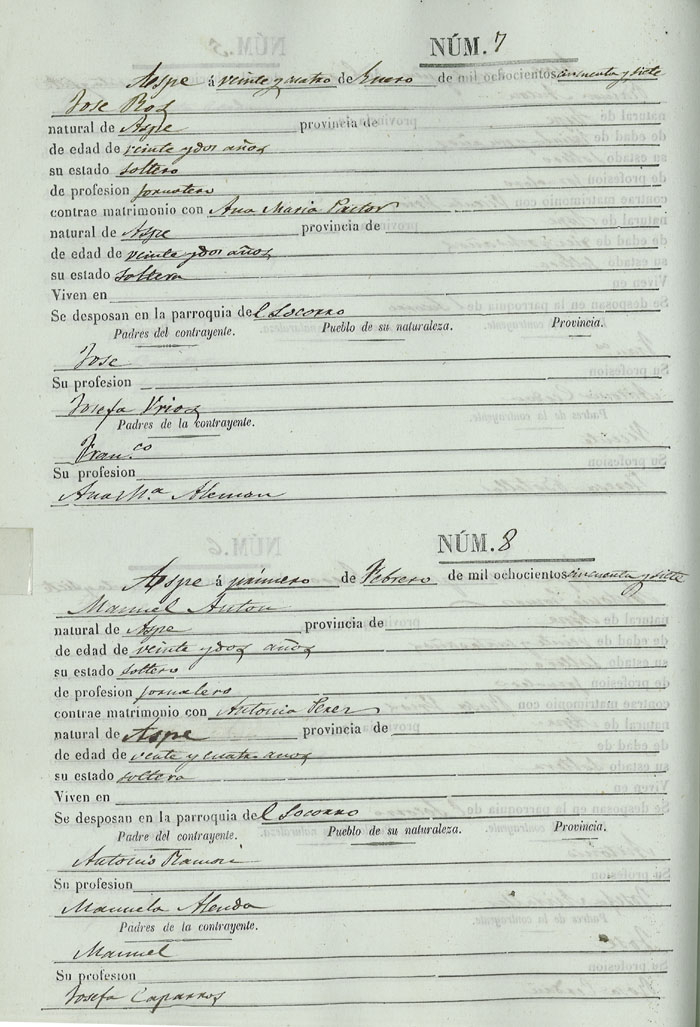 NÚM. 7
Aspe á veinte y cuatro de Enero de mil ochocientos cincuenta y siete
Jose Roz
natural de Aspe provincia de
de edad de veinte y dos años
su estado soltero
de profesion jornalero
contrae matrimonio con Ana Maria Pastor
natural de Aspe provincia de
de edad de veinte y dos años
su estado soltera
Viven en
Se desposan en la parroquia del Socorro
Padres del contrayente. Pueblo de su naturaleza. Provincia.
Jose
Su profesion
Josefa
Padres de la contrayente.
Fran.co
Su profesion
Ana Ma Aleman
NÚM. 8
Aspe á primero de Febrero de mil ochocientos cincuenta y siete
Manuel Anton
natural de Aspe provincia de
de edad de veinte y dos años
su estado soltero
de profesion jornalero
contrae matrimonio con Antonia Perez
natural de Aspe provincia de
de edad de veinte y cuatro años
su estado soltera
Viven en
Se desposan en la parroquia del Socorro
Padre del contrayente. Pueblo de su naturaleza. Provincia.
Antonio
Su profesion
Manuela Alenda
Padres de la contrayente.
Manuel
Su profesion
Josefa Caparros